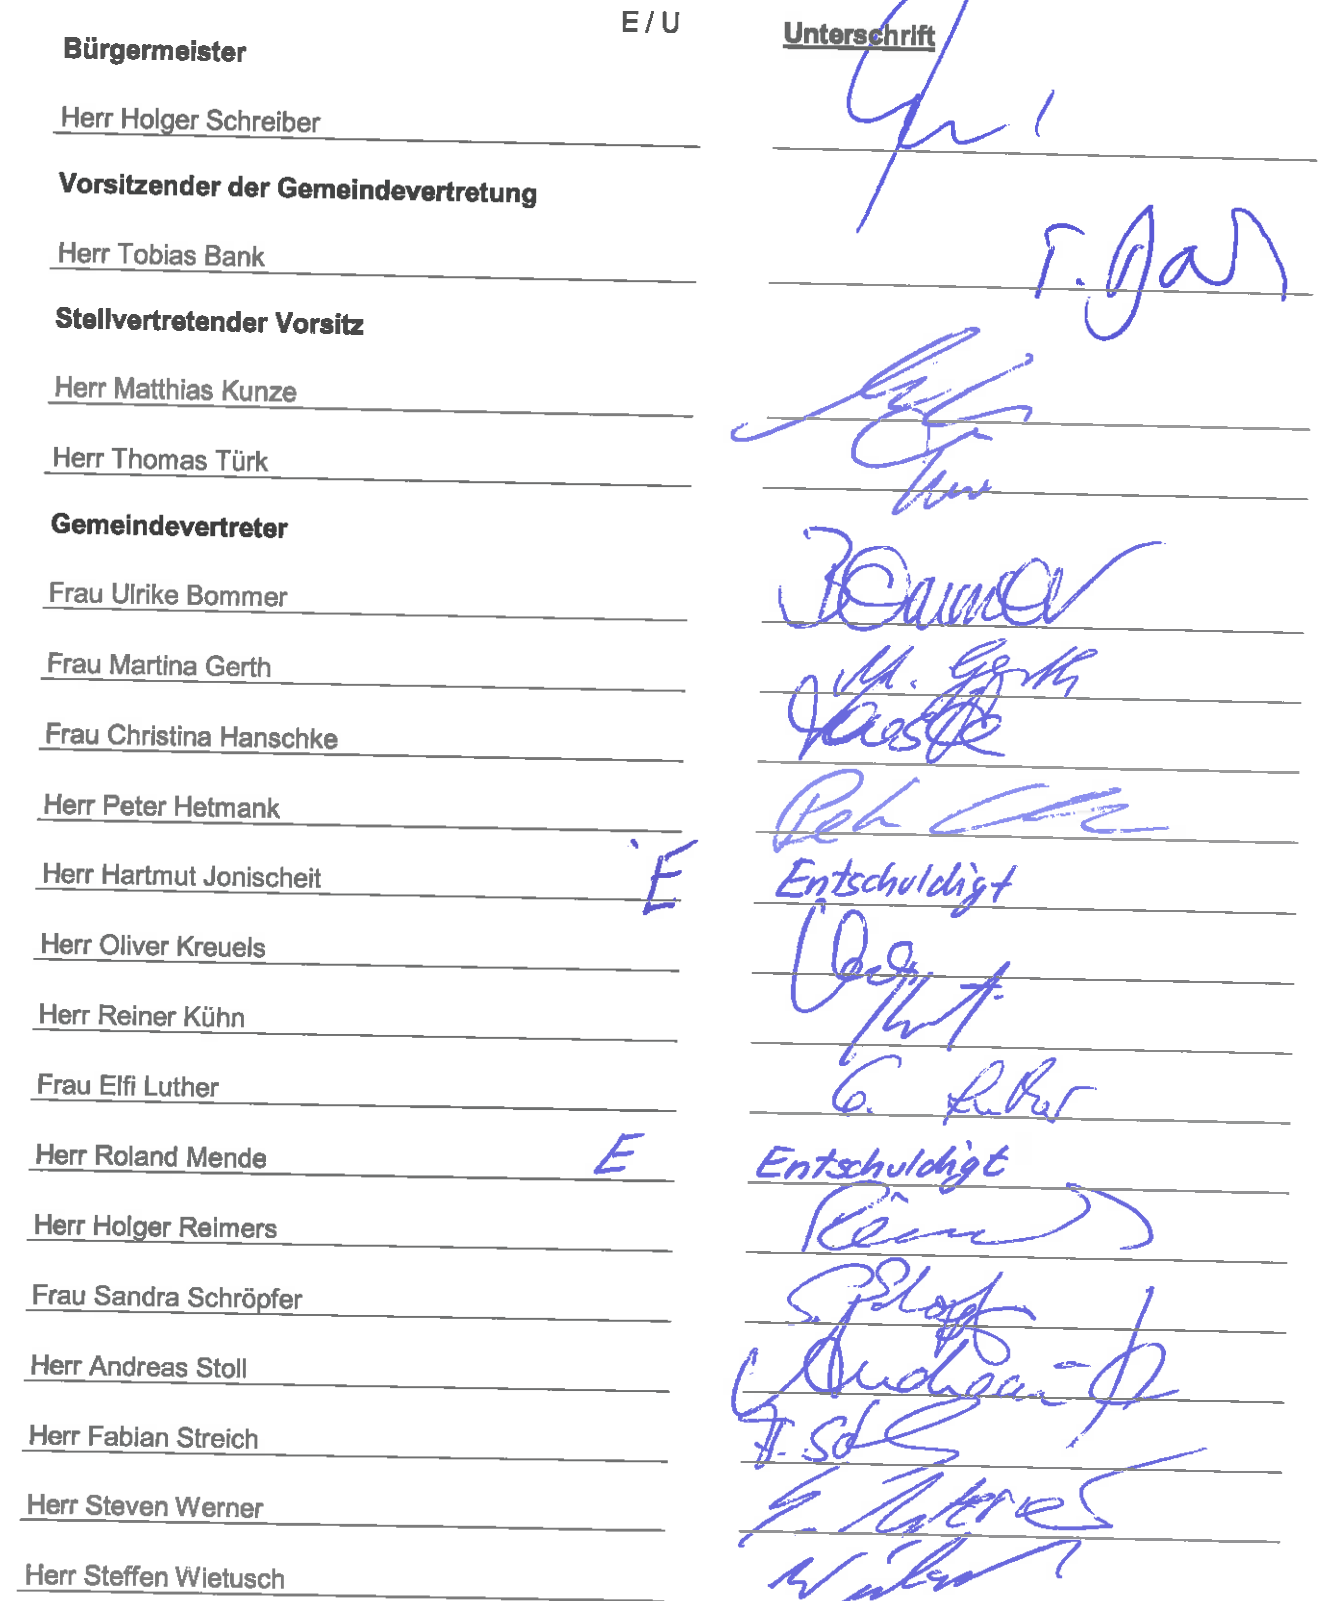 E / U Unterschrift
Bürgermeister
Herr Holger Schreiber
Vorsitzender der Gemeindevertretung
Herr Tobias Bank T. Bank
Stellvertretender Vorsitz
Herr Matthias Kunze
Herr Thomas Türk
Gemeindevertreter
Frau Ulrike Bommer Bommer
Frau Martina Gerth M. Gerth
Frau Christina Hanschke
Herr Peter Hetmank
Herr Hartmut Jonischeit E Entschuldigt
Herr Oliver Kreuels
Herr Reiner Kühn
Frau Elfi Luther E. Luther
Herr Roland Mende E Entschuldigt
Herr Holger Reimers
Frau Sandra Schröpfer
Herr Andreas Stoll
Herr Fabian Streich
Herr Steven Werner
Herr Steffen Wietusch